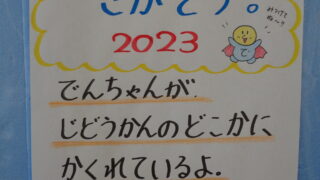 さがそう。
2023
みつけてね〜!!
で
でんちゃんが
じどうかんのどこかに
かくれているよ。